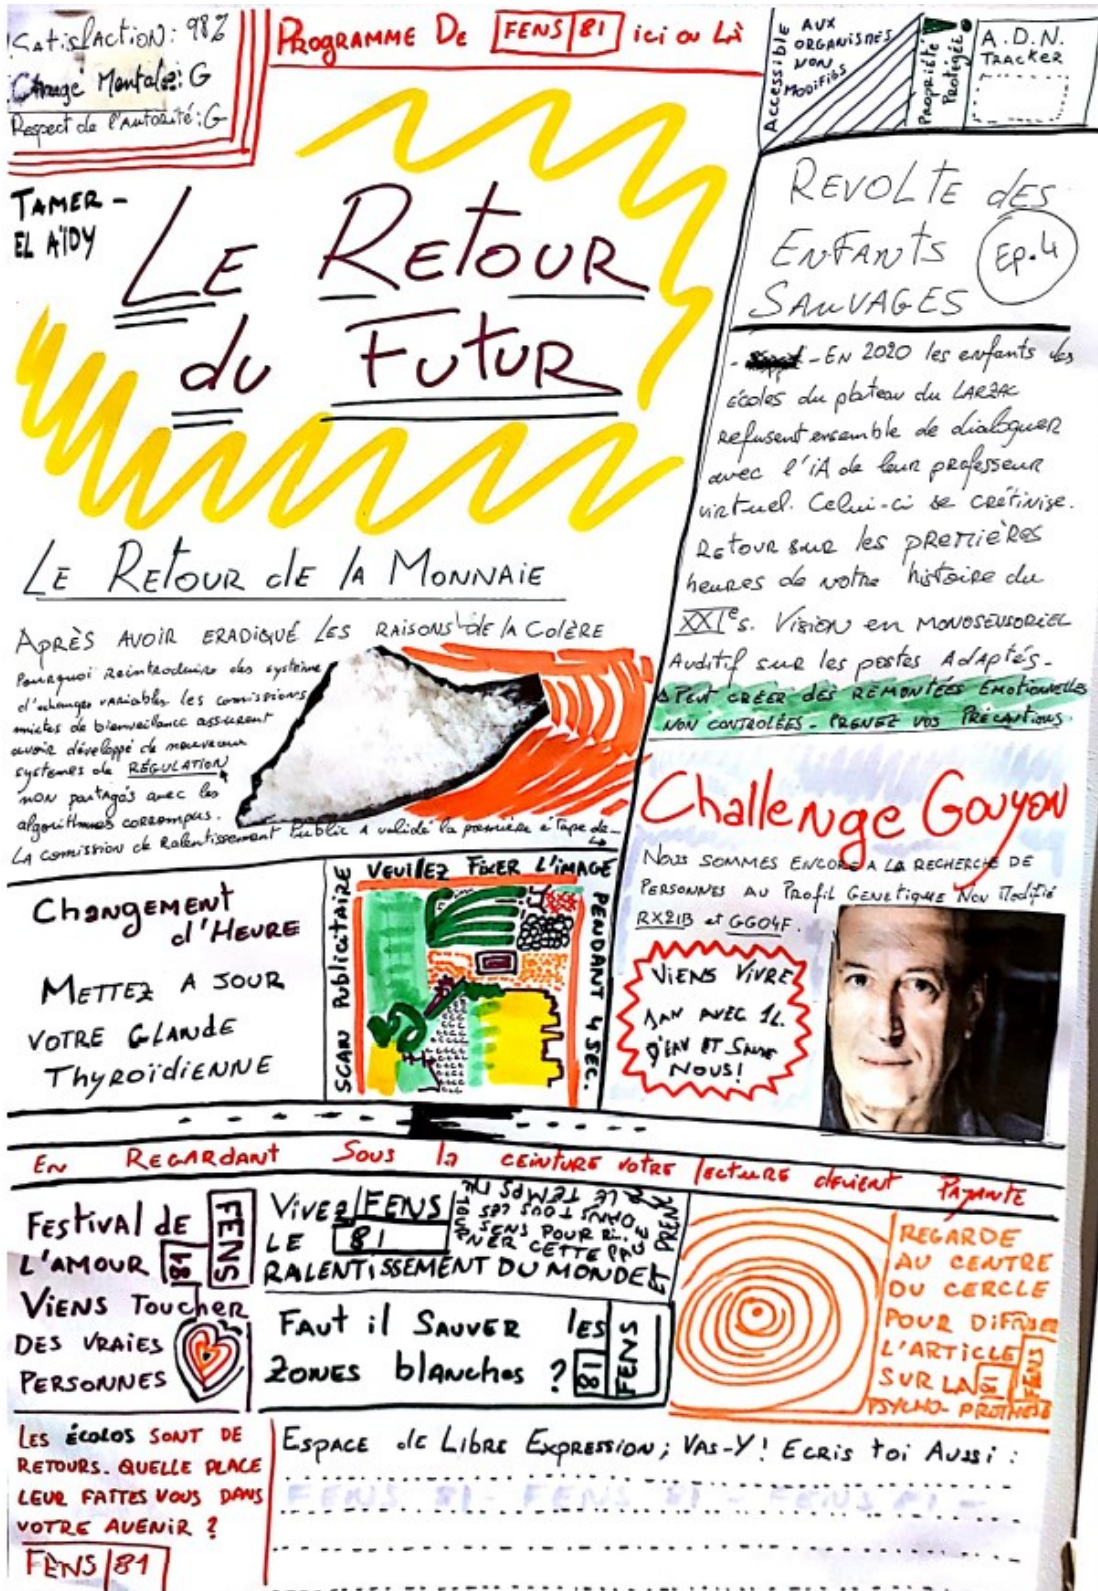 Satisfaction: 98%
Charge Mentale: G
Respect de l'Autorité: G
PROGRAMME DE FENS 81 ici ou Là
Accessible AUX
ORGANISMES
NON
MODIFIéS
Propriété
Protégée
A.D.N.
TRACKER
TAMER-
EL AÏDY
LE RETOUR
du FUTUR
REVOLTE dES
ENFANTS
SAUVAGES
Ep.4
- EN 2020 les enfants des
écoles du plateau du LARZAC
refusent ensemble de dialoguer
avec l'iA de leur professeur
virtuel. Celui-ci se crétinise.
Retour sur les PREMIÈRES
heures de notre histoire du
XXIe s. Vision en MONOSENSORIEL
Auditif sur les postes Adaptés-
PEUT CRÉER DES REMONTÉES EMOTIONNELLES
NON CONTROLÉES - PRENEZ VOS PRÉCAUTIONS
LE RETOUR dE lA MONNAIE
APRÈS AVOIR ERADIQUÉ LES RAISONS DE lA COLÈRE
Pourquoi Reintroduire des système
d'échanges variables les comissions
mixtes de bienveillance assurent
avoir développé de nouveaux
systemes de RÉGULATION
NON partagés avec les
algorithmes corrompus.
LA comission de Ralentissement Public A validé la première étape de-
Challenge Gouyon
NOUS SOMMES ENCORE A LA RECHERCHE DE
PERSONNES AU Profil GENETIQUE NON Modifié
RX21B et GG04F.
VIENS VIVRE
1AN AVEC 1L.
D'EAU ET SAUVE
NOUS!
CHANGEMENT
d'HEURE
METTEZ A JOUR
VOTRE GLANDE
THYROÏDIENNE
SCAN PUBLICITAIRE
VEUILEZ FIXER L'IMAGE
PENDANT 4 SEC.
EN REGARDANT SOUS la CEINTURE VOTRE lECTURE dEVIENT PAYANTE
FESTIVAL dE
L'AMOUR
FENS 81
VIENS TOUCHER
DES VRAIES
PERSONNES
VIVEZ FENS
LE 81
RALENTISSEMENT DU MONDE
FAUT il SAUVER lES
ZONES blANCHES ?
FENS 81
REGARDE
AU CENTRE
DU CERCLE
POUR DIFFUSER
L'ARTICLE
SUR LA
PSYCHO-PROTHESE
FENS
LES ÉCOLOS SONT DE
RETOURS. QUELLE PLACE
LEUR FAITES VOUS DANS
VOTRE AVENIR ?
FENS 81
ESPACE dE LIBRE EXPRESSION; VAS-Y! ECRIS TOI AUSSI:
FENS 81 - FENS 81 - FENS 81 -